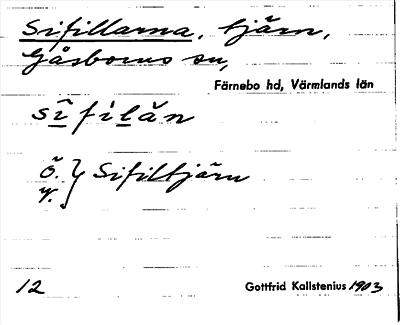 Sifillarna, tjärn,
Gåsborns sn,
Färnebo hd, Värmlands län
sīfilǎn
Ö. } Sifilltjärn
V.
12 Gottfrid Kallstenius 1903